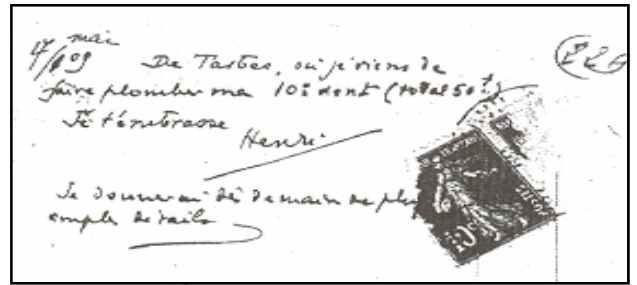 17 mai
/09 De Tarbes, où je viens de
faire plomber ma 10è dent (total 50f)
Je t'embrasse
Henri
Je donnerai dès demain de plus
amples détails